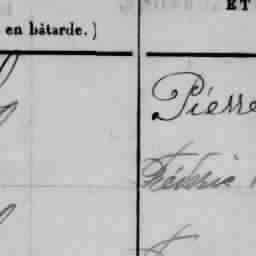 ET
en bâtarde.)
Pierre
Fréderic